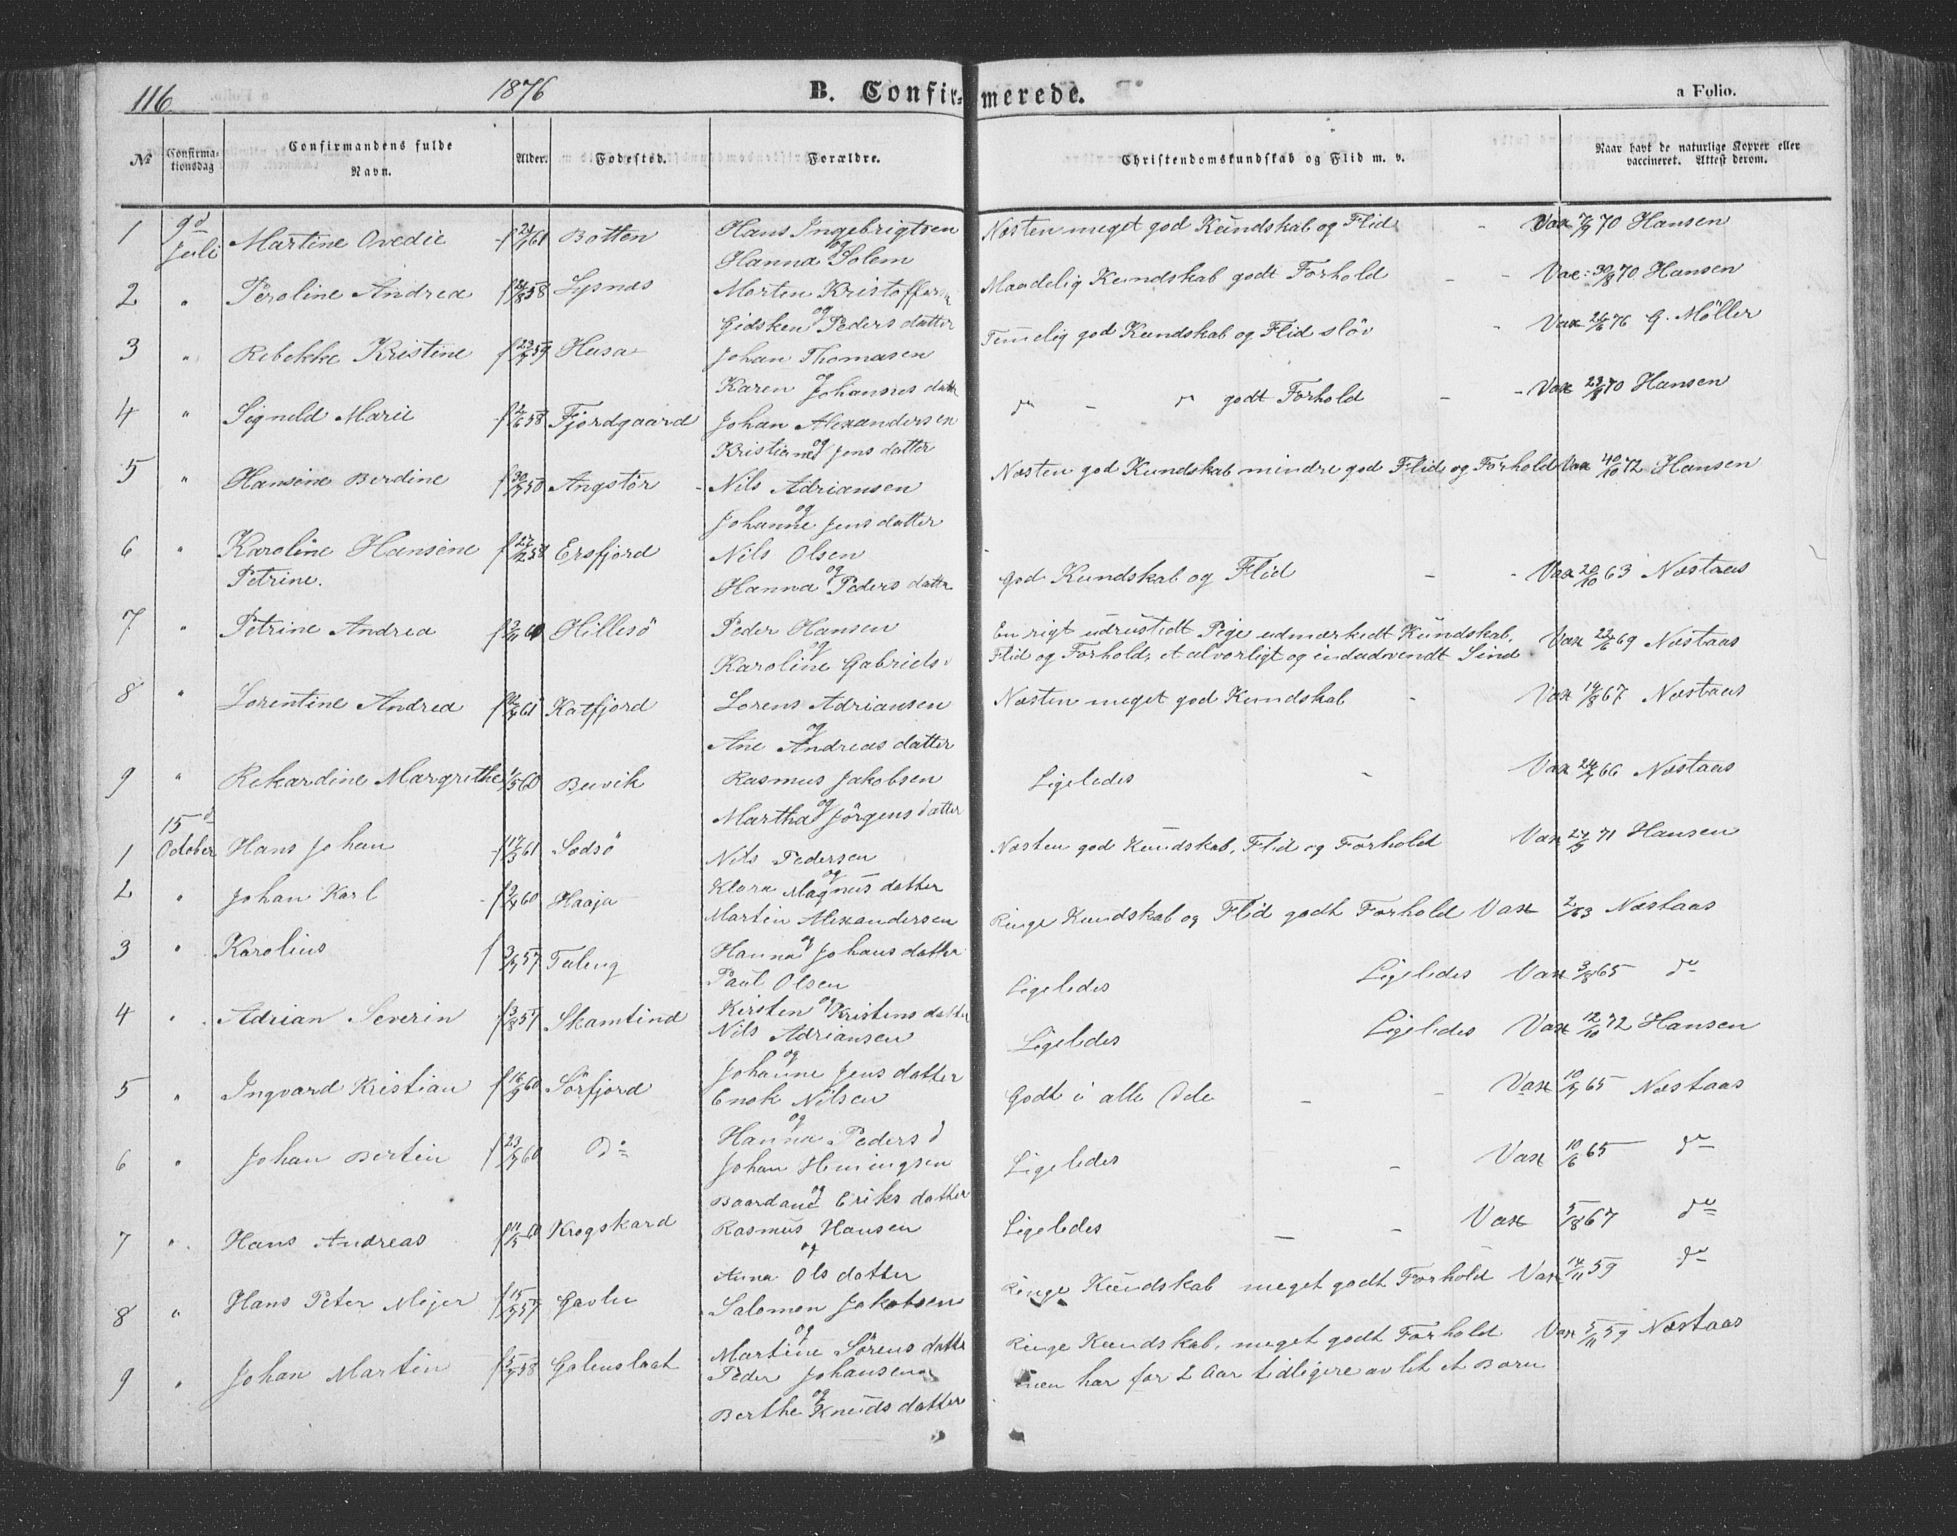 116 1876 B. Confirmerede. a Folio.
№ Confirmationsdag Confirmandens fulde Navn. Alder. Fødested. Forældre. Christendomskundskab og Flid m. v. Naar havt de naturlige Kopper eller vaccineret. Attest derom.
1 9d Juli Martine Ovedie f 61 Botten Hans Ingebrigtsen og Hanna Solem Næsten meget god Kundskab og Flid Vax 70 Hansen
2 " Peroline Andrea f 58 Lysnæs Morten Kristoffersen og Gidsken Pedersdatter Maadelig Kundskab godt Forhold Vac: 30/8 70 Hansen
3 " Rebekke Kristine f 23 59 Husa Johan Thomasen og Karen Johannes datter Temelig god Kundskab og Flid sløv Vax 24/6 76 G. Möller
4 " Signeld Marie f 2/6 58 Fjordgaard Johan Alexandersen og Kristiane Jens datter do - do godt Forhold Vax 23 70 Hansen
5 " Hansine Berdine f 30 58 Angstør Nils Adriansen og Johanne Jens datter Næsten god Kundskab mindre god Flid og Forhold Vax 72 Hansen
6 " Karoline Hansine Petrine. f 27/12 58 Ersfjord Nils Olsen og Hanna Peders datter God Kundskab og Flid Vax 20/10 63 Næstaas
7 " Petrine Andrea f 60 Hillesö Peder Hansen og Karoline Gabriels d En rigt udrustedt Pige udmærkedt Kundskab,
Flid og Forhold, et alvorligt og indadvendt Sind Vax 22/6 69 Næstaas
8 " Lorentine Andrea f 61 Katfjord Lorens Adriansen og Ane Andreas datter Næsten meget god Kundskab Vax 14/8 67 Næstaas
9 " Rekardine Margrethe 1/5 60 Buvik Rasmus Jakobsen og Martha Jörgens datter Ligeledes Vax 24 66 Næstaas
1 15d October Hans Johan f 17/3 61 Sodsö Nils Pedersen og Klara Magnus datter Næsten god Kundskab, Flid og Forhold Vax 27 71 Hansen
2 " Johan Karl f 60 Haaja Martin Alexandersen og Hanna Johans datter Ringe Kundskab og Flid godt Forhold Vax 63 Næstaas
3 " Karolius f 57 Paul Olsen Kirsten og Kristens datter Ligeledes Ligeledes Vax 3/8 65 do
4 " Adrian Severin f 3/8 57 Skamtind Nils Adriansen og Johanne Jens datter Ligeledes Ligeledes Vax 12/10 72 Hansen
5 " Ingvard Kristian f 16/9 60 Sörfjord Enok Nilsen og Hanna Peders d Godt i alle Dele Vax 65 Næstaas
6 " Johan Bertin f 23 60 Do Johan Heningsen og Baardane Eriks datter Ligeledes Vax 10/6 65 do
7 " Hans Andreas f 11/5 60 Krogskard Rasmus Hansen og Anna Ols datter Ligeledes Vax 5/8 67 do
8 " Hans Peter Mejer f 15 57 Salomon Jakobsen og Martine Sörens datter Ringe Kundskab meget godt Forhold Vax 14/11 59 do
9 " Johan Martin f 58 Peder Johansen og Berthe Knuds datter Ringe Kundskab, meget godt Forhold Vax 5/11 59 Næstaas
men har for 2 Aar tidligere avlet et Barn